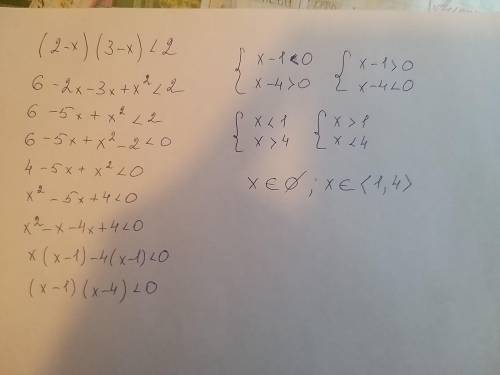 (2-x)(3-x)<2
6 -2x-3x+x²<2
6 -5x+x²<2
6 -5x+x²-2<0
4-5x+x²<0
x²-5x+4<0
x²-x-4x+4<0
x(x-1)-4(x-1)<0
(x-1)(x-4)<0
{ x-1<0 { x-1>0
x-4>0 x-4<0
{ x<1 { x>1
x>4 x<4
x∈∅; x∈⟨1,4⟩